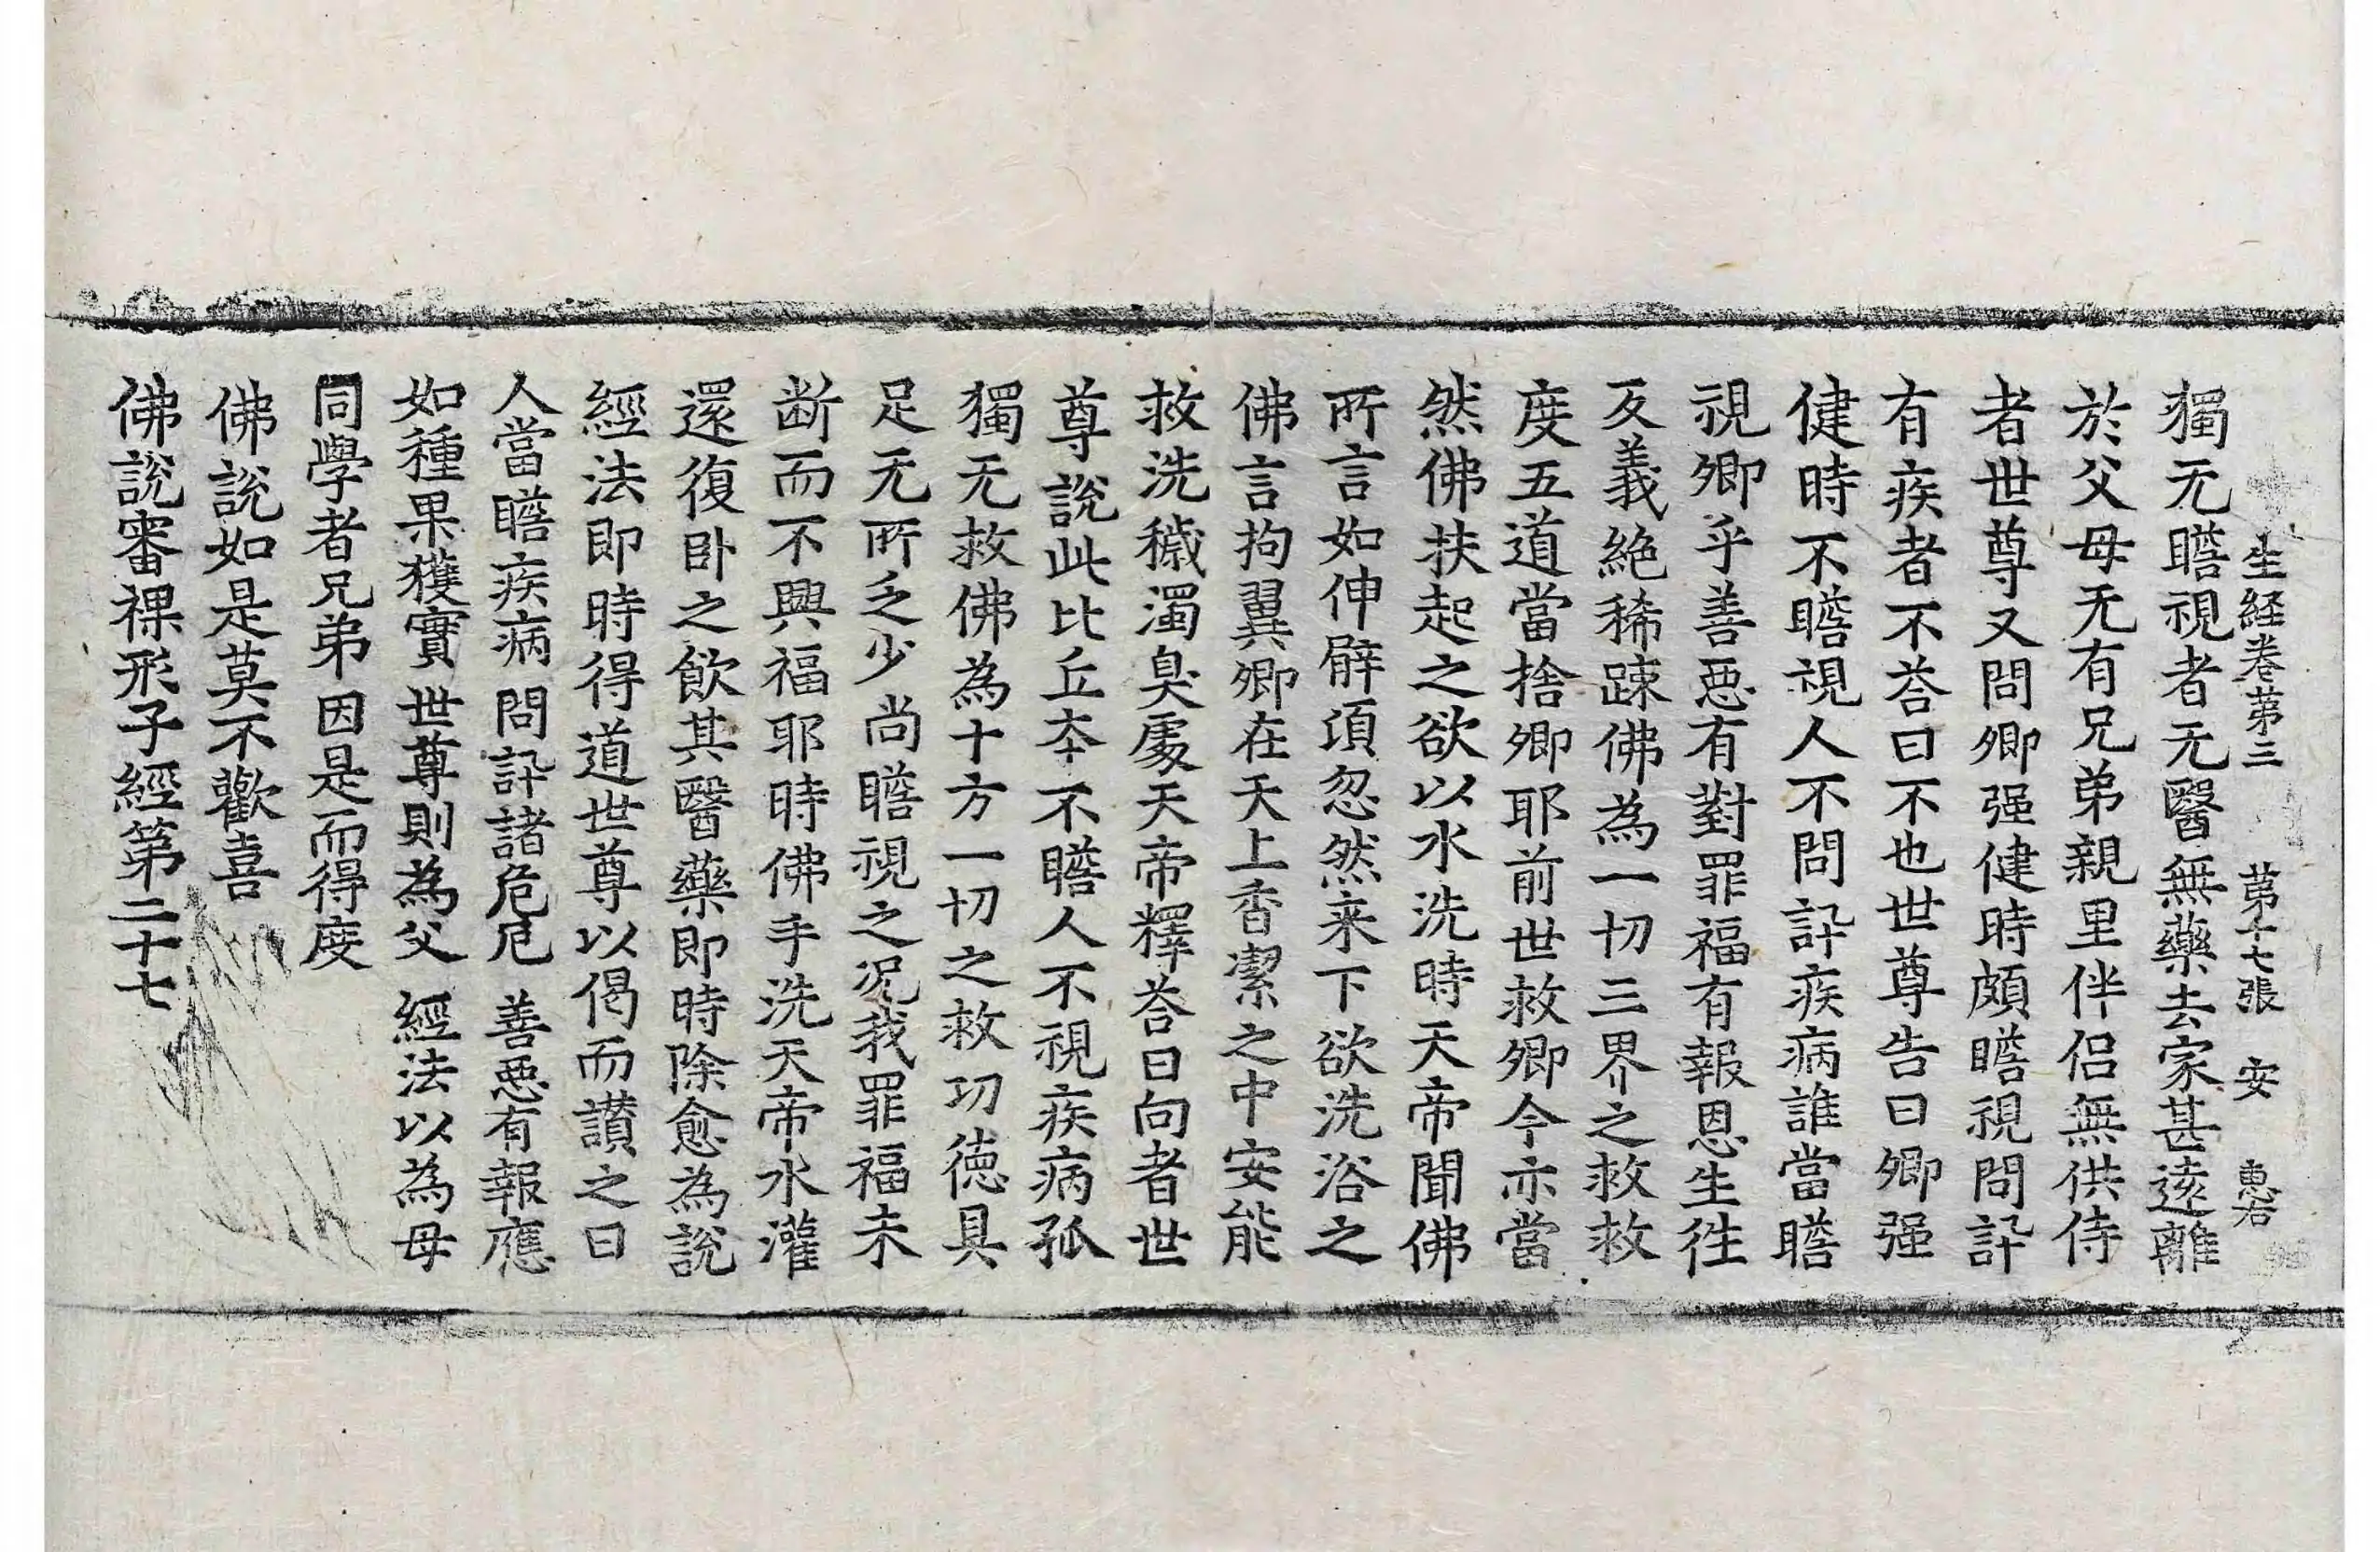 生経卷苐三 苐十七張 安 惠
獨无瞻視者无醫無藥去家甚逺離
於父母无有兄弟親里伴侣無供侍
者世尊又問卿强健時頗瞻視問訊
有疾者不荅曰不也世尊告曰卿强
健時不瞻視人不問訊疾病誰當瞻
視卿乎善惡有對罪福有報恩生徃
反義絶稀踈佛為一切三界之救救
度五道當捨卿耶前世救卿今亦當
然佛扶起之欲以水洗時天帝聞佛
所言如伸臂頃忽然来下欲洗浴之
佛言拘翼卿在天上香潔之中安能
救洗穢濁臭處天帝釋荅曰向者世
尊說此比丘夲不瞻人不視疾病孤
獨无救佛為十方一切之救功徳具
足无所乏少尚瞻視之况我罪福未
断而不興福耶時佛手洗天帝水灌
還復卧之飲其醫藥即時除愈為說
經法即時得道世尊以偈而讃之曰
人當瞻疾病 問訊諸危厄 善惡有報應
如種果獲實 世尊則為父 經法以為母
同學者兄弟 因是而得度
佛說如是莫不歡喜
佛說審祼形子經第二十七